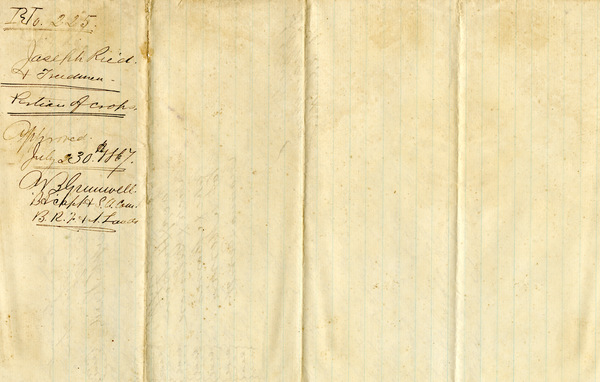 No. 225.
Joseph Ried.
& Freedmen.
Portion of crops.
Approved.
July 30th 1867.
Grunwell
Bt Capt & S.A. Com.
B. R. F. & A. Lands